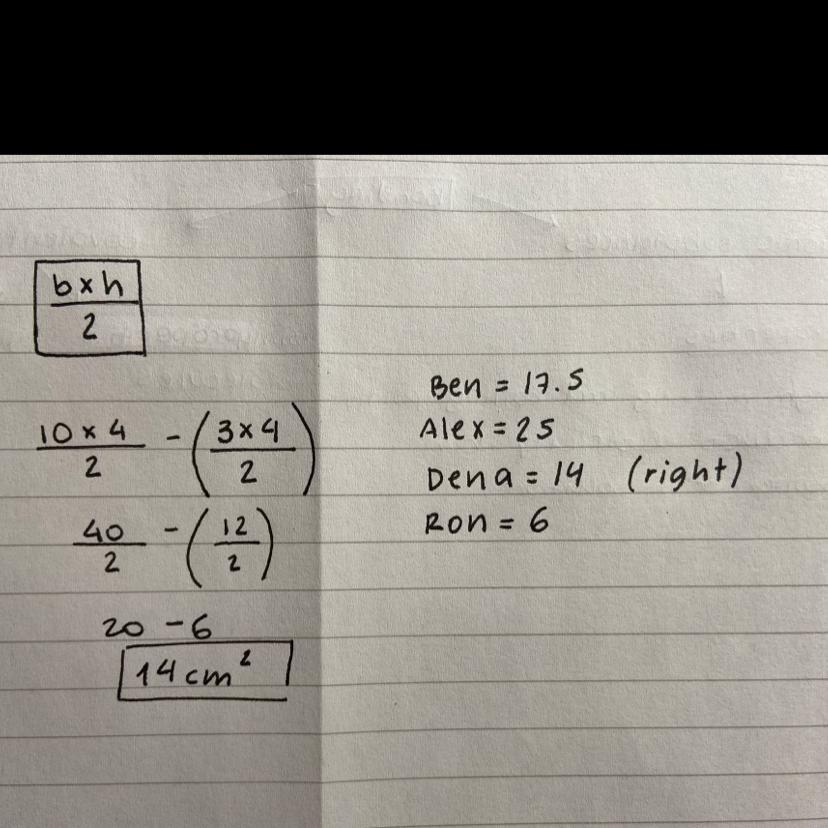 b x h
2
10 x 4 - (3 x 4)
2 2
40 - (12)
2 2
20 - 6
14 cm²
Ben = 17.5
Alex = 25
Dena = 14 (right)
Ron = 6